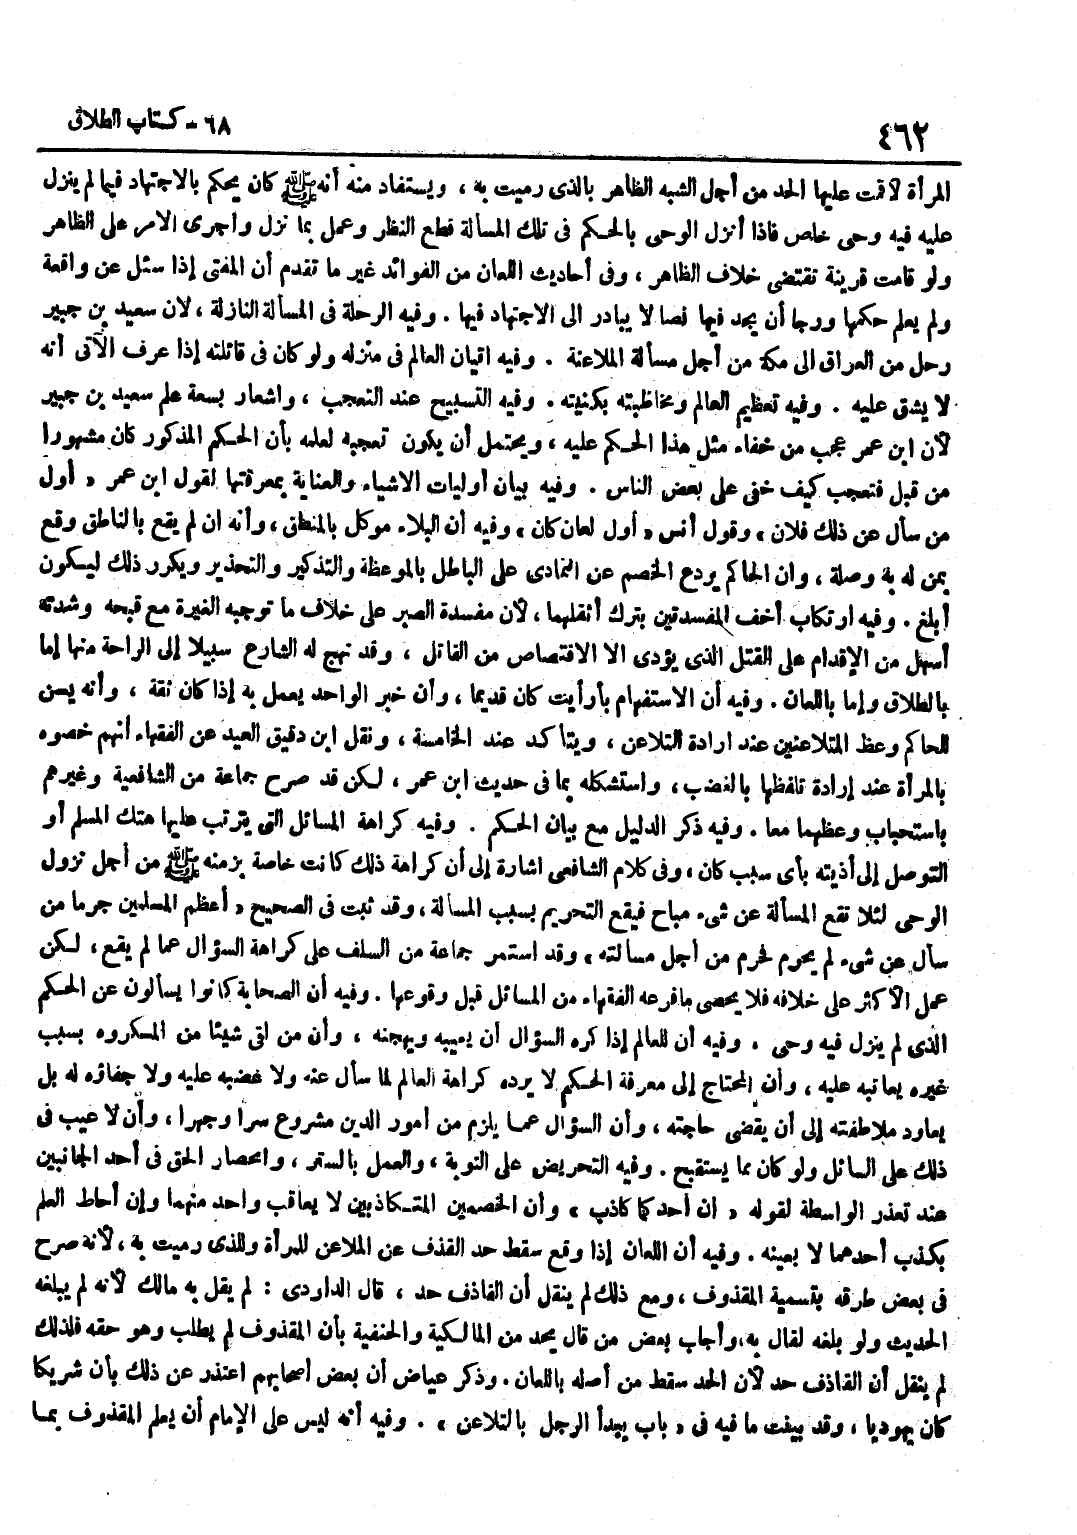 ٤٦٢
٦٨ - كتاب الطلاق
المرأة لأقت عليها الحد من أجل الشبه الظاهر بالذى رميت به ، ويستفاد منه أنه ﷺ كان يحكم بالاجتهاد فيما لم ينزل
عليه فيه وحى خاص فاذا أنزل الوحى بالحكم فى تلك المسألة قطع النظر وعمل بما نزل وأجرى الامر على الظاهر
ولو قامت قرينة تقتضى خلاف الظاهر ، وفى أحاديث اللعان من الفوائد غير ما تقدم أن المفتى إذا سئل عن واقعة
ولم يعلم حكمها ورجا أن يجد فيها نصا لا يبادر الى الاجتهاد فيها . وفيه الرحلة فى المسألة النازلة ، لان سعيد بن جبير
رحل من العراق الى مكة من أجل مسألة الملاعنة . وفيه اتيان العالم فى منزله ولو كان فى قائلته إذا عرف الآتى أنه
لا يشق عليه . وفيه تعظيم العالم ومخاطبته بكنيته . وفيه التسبيح عند التعجب ، واشعار بسعة علم سعيد بن جبير
لأن ابن عمر عجب من خفاء مثل هذا الحكم عليه ، ويحتمل أن يكون تعجبه لعلمه بأن الحكم المذكور كان مشهورا
من قبل فتعجب كيف خفى على بعض الناس . وفيه بيان أوليات الاشياء والعناية بمعرفتها لقول ابن عمر « أول
من سأل عن ذلك فلان » وقول أنس « أول لعان كان » وفيه أن البلاء موكل بالمنطق ، وأنه ان لم يقع بالناطق وقع
بمن له به وصلة ، وان الحاكم يردع الخصم عن التمادى على الباطل بالموعظة والتذكير والتحذير ويكرر ذلك ليكون
أبلغ . وفيه ارتكاب أخف المفسدتين بترك أثقلهما ، لأن مفسدة الصبر على خلاف ما توجبه الغيرة مع قبحه وشدته
أسهل من الإقدام على القتل الذى يؤدى الا الاقتصاص من القاتل ، وقد نهج له الشارع سبيلا إلى الراحة منها إما
بالطلاق وإما باللعان . وفيه أن الاستفهام بأرأيت كان قديما ، وأن خبر الواحد يعمل به إذا كان ثقة ، وأنه يسن
للحاكم وعظ المتلاعنين عند ارادة التلاعن ، ويتأكد عند الخامسة ، ونقل ابن دقيق العيد عن الفقهاء أنهم خصوه
بالمرأة عند إرادة تلفظها بالغضب ، واستشكله بما فى حديث ابن عمر ، لكن قد صرح جماعة من الشافعية وغيرهم
باستحباب وعظهما معا . وفيه ذكر الدليل مع بيان الحكم . وفيه كراهة المسائل التى يترتب عليها هتك المسلم أو
التوصل إلى أذيته بأى سبب كان ، وفى كلام الشافعى اشارة إلى أن كراهة ذلك كانت خاصة بزمنه ﷺ من أجل نزول
الوحى لئلا تقع المسألة عن شىء مباح فيقع التحريم بسبب المسألة ، وقد ثبت فى الصحيح « أعظم المسلمين جرما من
سأل عن شىء لم يحرم فحرم من أجل مسألته » وقد استمر جماعة من السلف على كراهة السؤال عما لم يقع ، لكن
عمل الأكثر على خلافه فلا يحصى ما فرعه الفقهاء من المسائل قبل وقوعها . وفيه أن الصحابة كانوا يسألون عن الحكم
الذى لم ينزل فيه وحى . وفيه أن للعالم إذا كره السؤال أن يعيبه ويهجنه ، وأن من لقى شيئا من المكروه بسبب
غيره يعاتبه عليه ، وأن المحتاج إلى معرفة الحكم لا يرده كراهة العالم لما سأل عنه ولا غضبه عليه ولا جفاؤه له بل
يعاود ملاطفته إلى أن يقضى حاجته ، وأن السؤال عما يلزم من أمور الدين مشروع سرا وجهرا ، وأن لا عيب فى
ذلك على السائل ولو كان مما يستقبح . وفيه التحريض على التوبة ، والعمل بالستر ، وانحصار الحق فى أحد الجانبين
عند تعذر الواسطة لقوله « ان أحدكما كاذب » وأن الخصمين المتكاذبين لا يعاقب واحد منهما وإن أحاط العلم
بكذب أحدهما لا بعينه . وفيه أن اللعان إذا وقع سقط حد القذف عن الملاعن للمرأة وللذى رميت به ، لأنه صرح
فى بعض طرقه بتسمية المقذوف ، ومع ذلك لم ينقل أن القاذف حد ، قال الداودى : لم يقل به مالك لأنه لم يبلغه
الحديث ولو بلغه لقال به ، وأجاب بعض من قال يحد من المالكية والحنفية بأن المقذوف لم يطلب وهو حقه فلذلك
لم ينقل أن القاذف حد لأن الحد سقط من أصله باللعان . وذكر عياض أن بعض أصحابهم اعتذر عن ذلك بأن شريكا
كان يهوديا ، وقد بينت ما فيه فى « باب يبدأ الرجل بالتلاعن » . وفيه أنه ليس على الإمام أن يعلم المقذوف بما